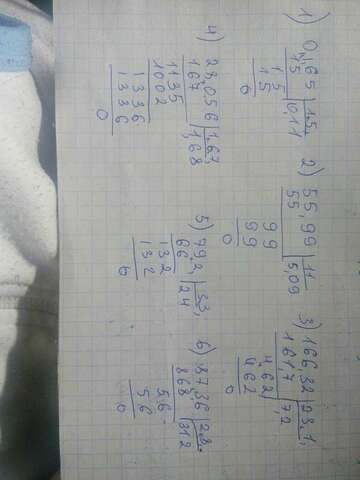 1) 0,1,65 | 1,5,
15 | 0,11
15
15
0
2) 55,99 | 11
55 | 5,09
99
99
0
3) 166,32 | 23,1,
1617 | 7,2
462
462
0
4) 28,056 | 1,67,
167 | 1,68
1135
1002
1336
1336
0
5) 79,2, | 3,3,
66 | 24
132
132
0
6) 87,36 | 2,8,
868 | 312
56
56
0